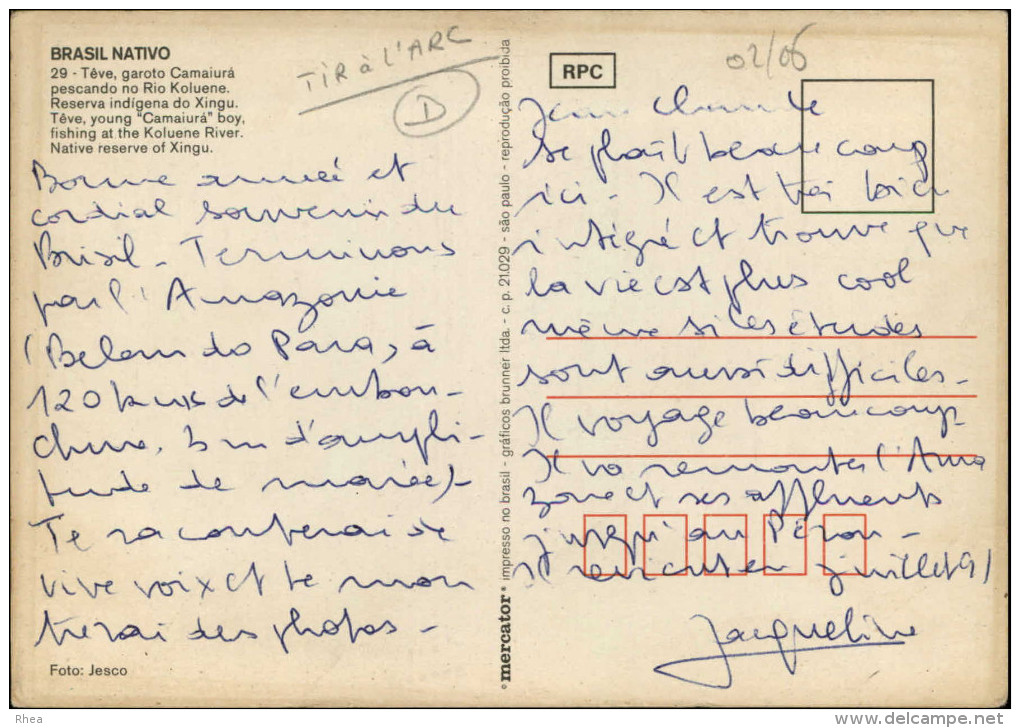 BRASIL NATIVO
29 - Têve, garoto Camaiurá
pescando no Rio Koluene.
Reserva indígena do Xingu.
Têve, young "Camaiurá" boy,
fishing at the Koluene River.
Native reserve of Xingu.
TIR à L'ARC
D
Bonne année et
cordial souvenir du
Brésil - Terminons
par l'Amazonie
(Belem do Para, à
120 kms de l'embou-
chure, 3 m d'ampli-
tude de marée) -
Te raconterai de
vive voix et te mon
trerai des photos -
Foto: Jesco
mercator impresso no brasil - gráficos brunner ltda. - c. p. 21.029 - são paulo - reprodução proibida
RPC
02/06
Jean Claude
se plaît beaucoup
ici - Il est très bien
intégré et trouve que
la vie est plus cool
même si les études
sont aussi difficiles -
Il voyage beaucoup
Il va remonter l'Ama
zone et ses affluents
jusqu'au Pérou -
Il revient en juillet 91
Jacqueline
Rhea
www.delcampe.net